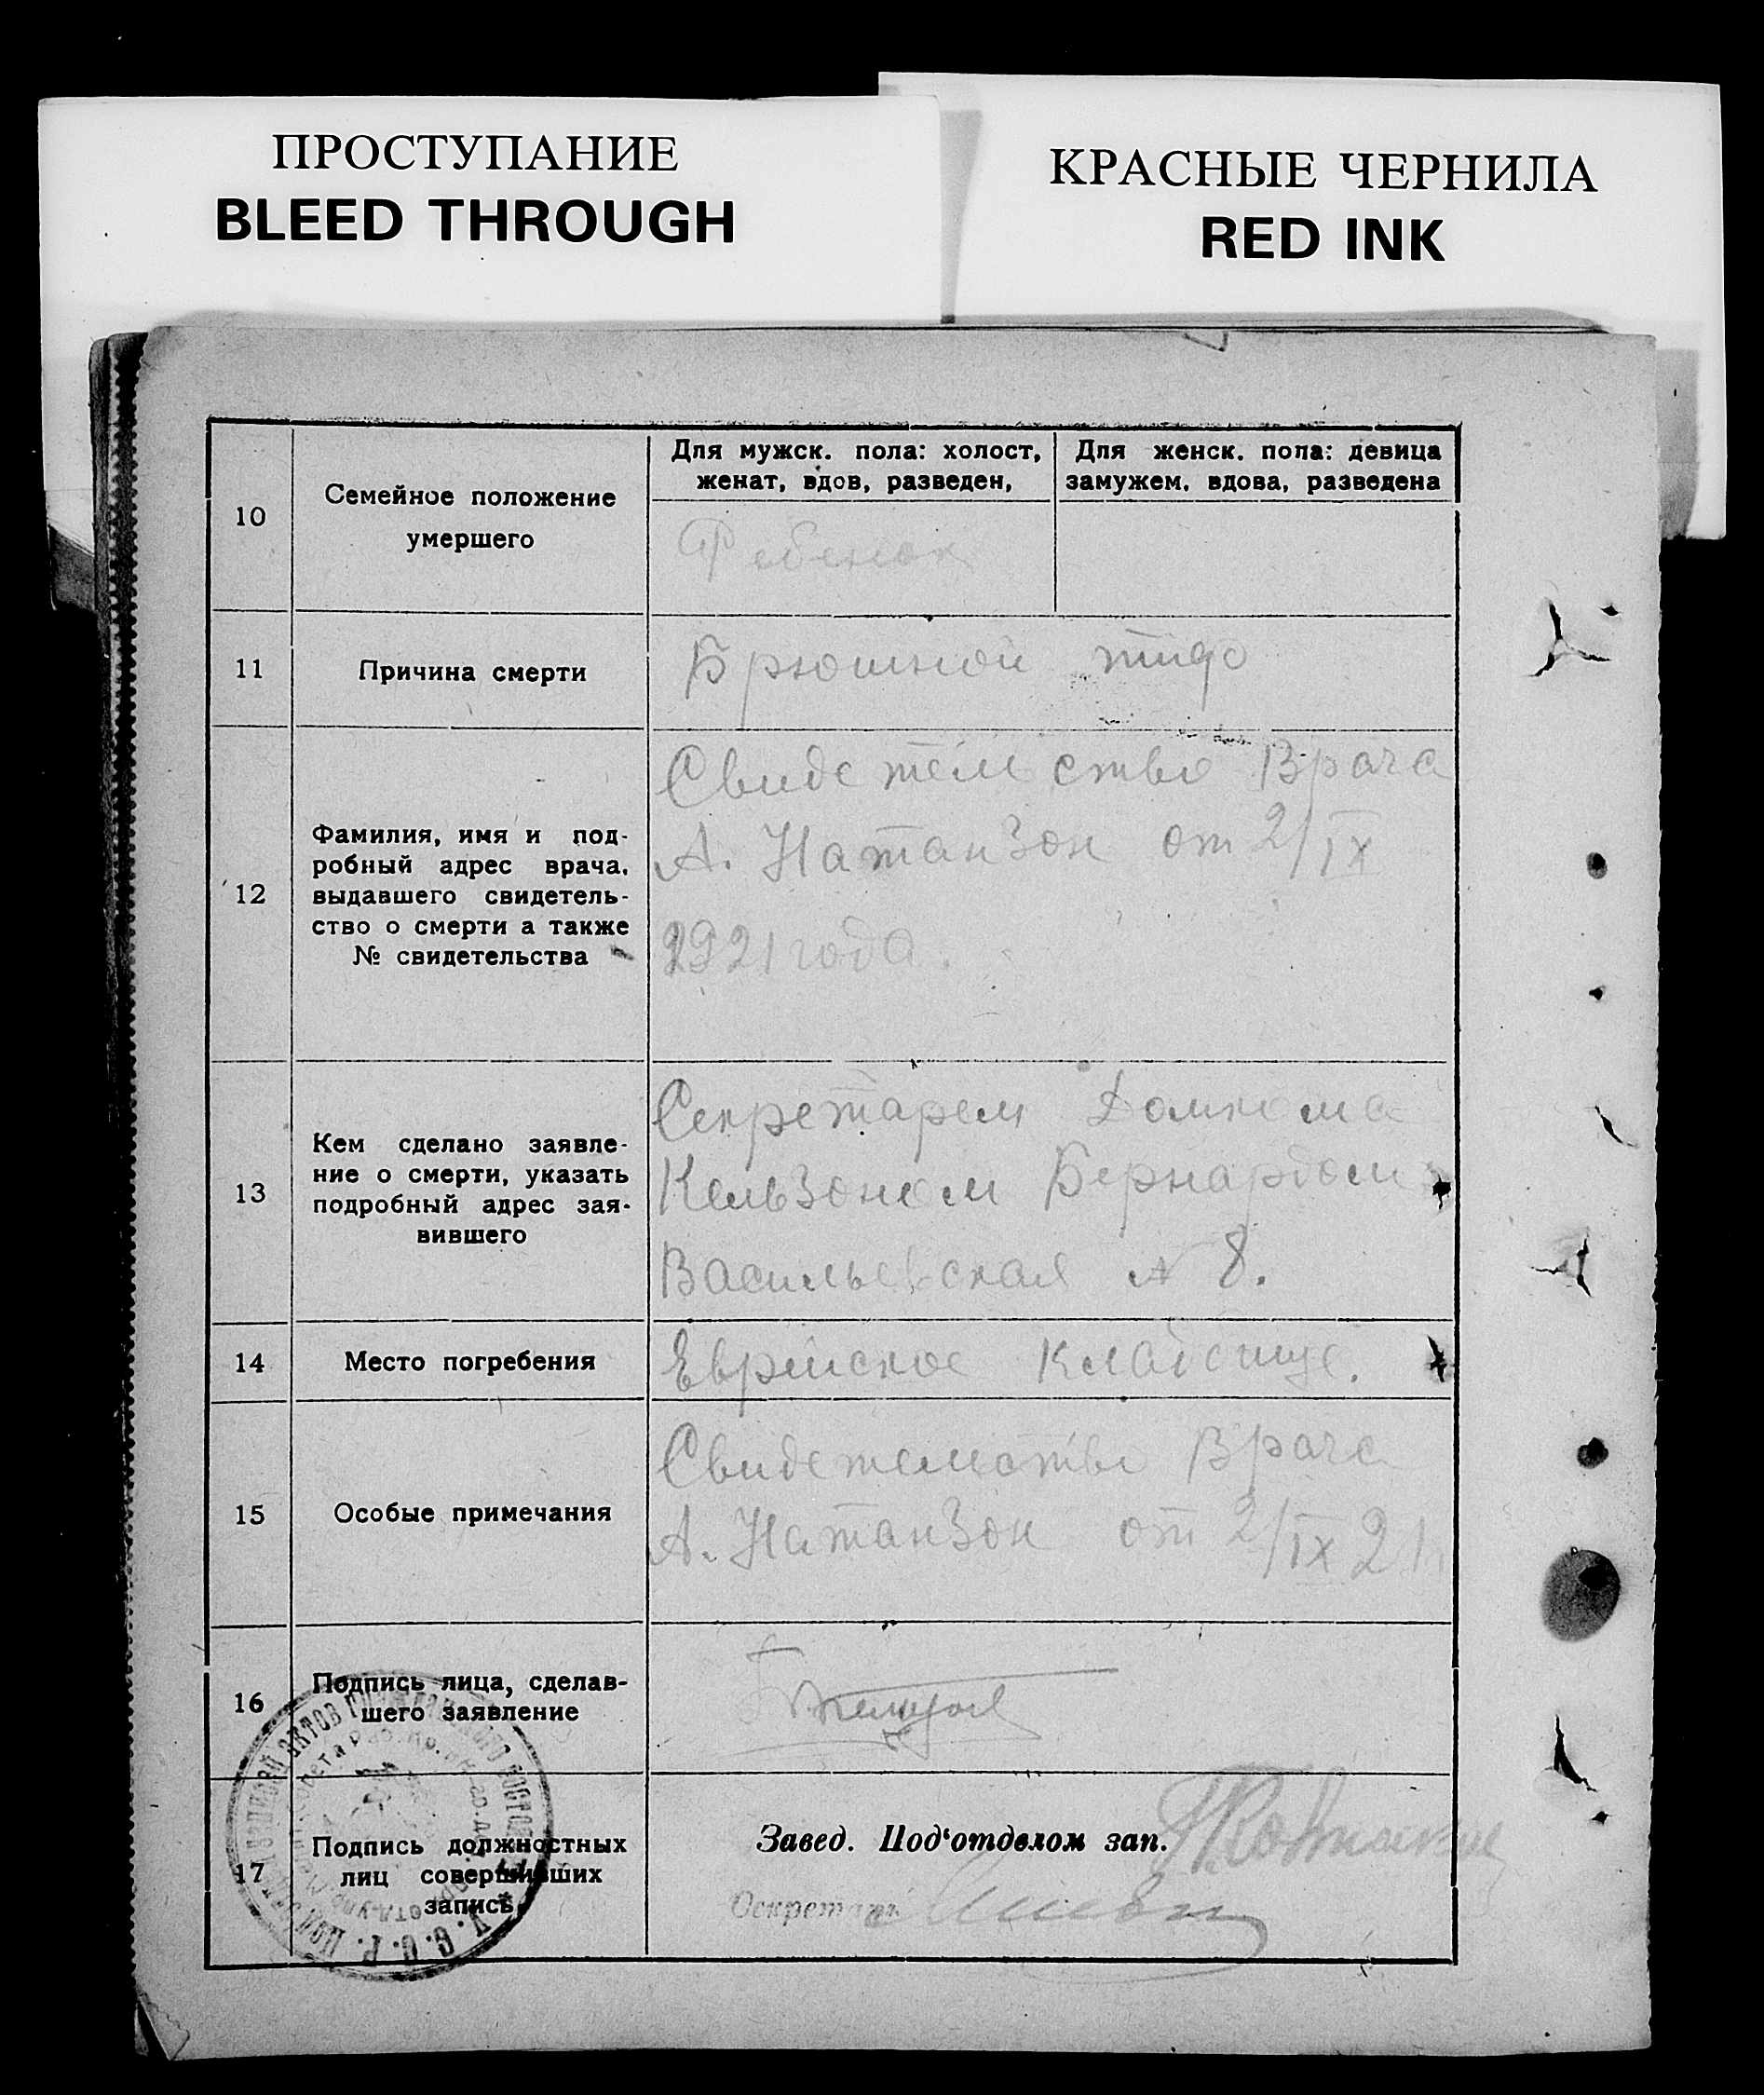 ПРОСТУПАНИЕ
BLEED THROUGH
КРАСНЫЕ ЧЕРНИЛА
RED INK
10
Семейное положение
умершего
Для мужск. пола: холост,
женат, вдов, разведен,
Для женск. пола: девица
замужем, вдова, разведена
Ребенок
11
Причина смерти
Брюшной тиф
12
Фамилия, имя и под-
робный адрес врача,
выдавшего свидетель-
ство о смерти а также
№ свидетельства
Свидетельство Врача
А. Натанзон от 2/IX
1921 года.
13
Кем сделано заявле-
ние о смерти, указать
подробный адрес зая-
вившего
Секретарем Домкома
Кельзоном Бернардом
Васильевская № 8.
14
Место погребения
Еврейское Кладбище.
15
Особые примечания
Свидетельство Врача
А. Натанзон от 2/IX 21
16
Подпись лица, сделав-
шего заявление
17
Подпись должностных
лиц совершивших
запись
Завед. Под'отделом зап.
Секретарь
У. С. С. Р.